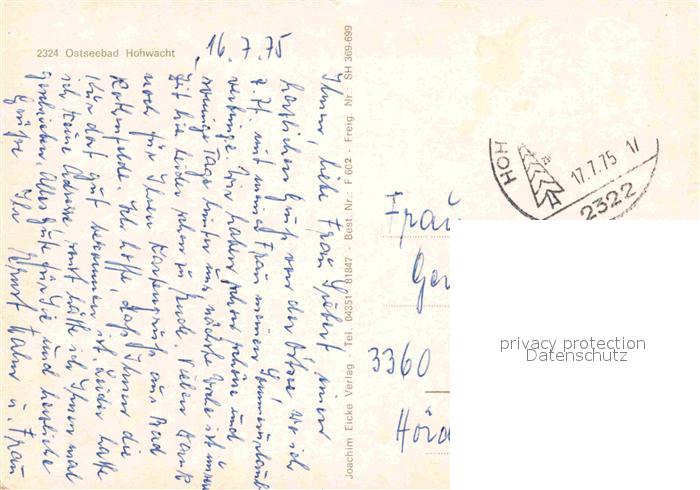 2324 Ostseebad Hohwacht
16.7.75
Ihnen, liebe Frau Siebert einen
herzlichen Gruß von der Ostsee wo ich
z. Zt. mit meiner Frau meinen Sommerurlaub
verbringe. Wir haben schon schöne und
sonnige Tage hinter uns, nächste Woche ist unsere
Zeit hie leider schon zu Ende. Vielen Dank
noch für Ihren Kartengruß aus Bad
Rothenfelde. Ich hoffe daß Ihnen die
Kur dort gut bekommen ist. Leider hatte
ich keine Adresse, sonst hätte ich Ihnen mal
geschrieben. Alles Gute für Sie und herzliche
Grüße Ihr Ernst Hahn u. Frau
Joachim Eicke Verlag · Tel. 04351 / 81847 · Best. Nr.: F 602 · Freig. Nr.: SH 369-699
HOH
17.7.75
2322
Frau
Ger
3360
Hörd
privacy protection
Datenschutz